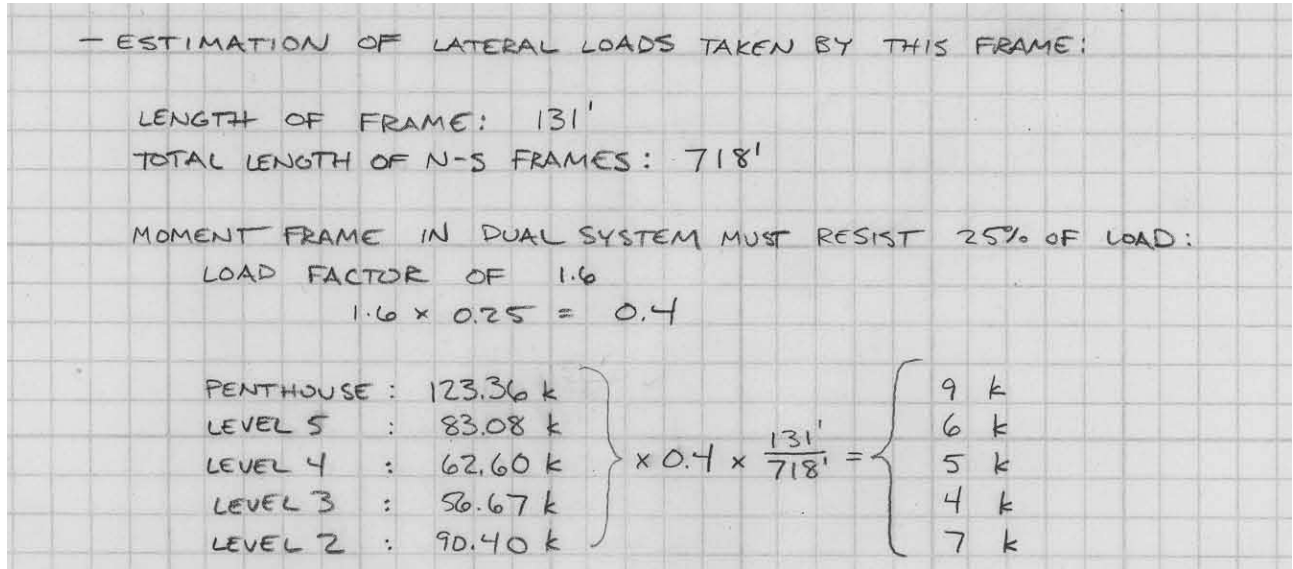 - ESTIMATION OF LATERAL LOADS TAKEN BY THIS FRAME:
LENGTH OF FRAME: 131'
TOTAL LENGTH OF N-S FRAMES: 718'
MOMENT FRAME IN DUAL SYSTEM MUST RESIST 25% OF LOAD:
LOAD FACTOR OF 1.6
1.6 × 0.25 = 0.4
PENTHOUSE : 123.36 k 9 k
LEVEL 5 : 83.08 k 6 k
LEVEL 4 : 62.60 k × 0.4 × 131'/718' = 5 k
LEVEL 3 : 56.67 k 4 k
LEVEL 2 : 90.40 k 7 k